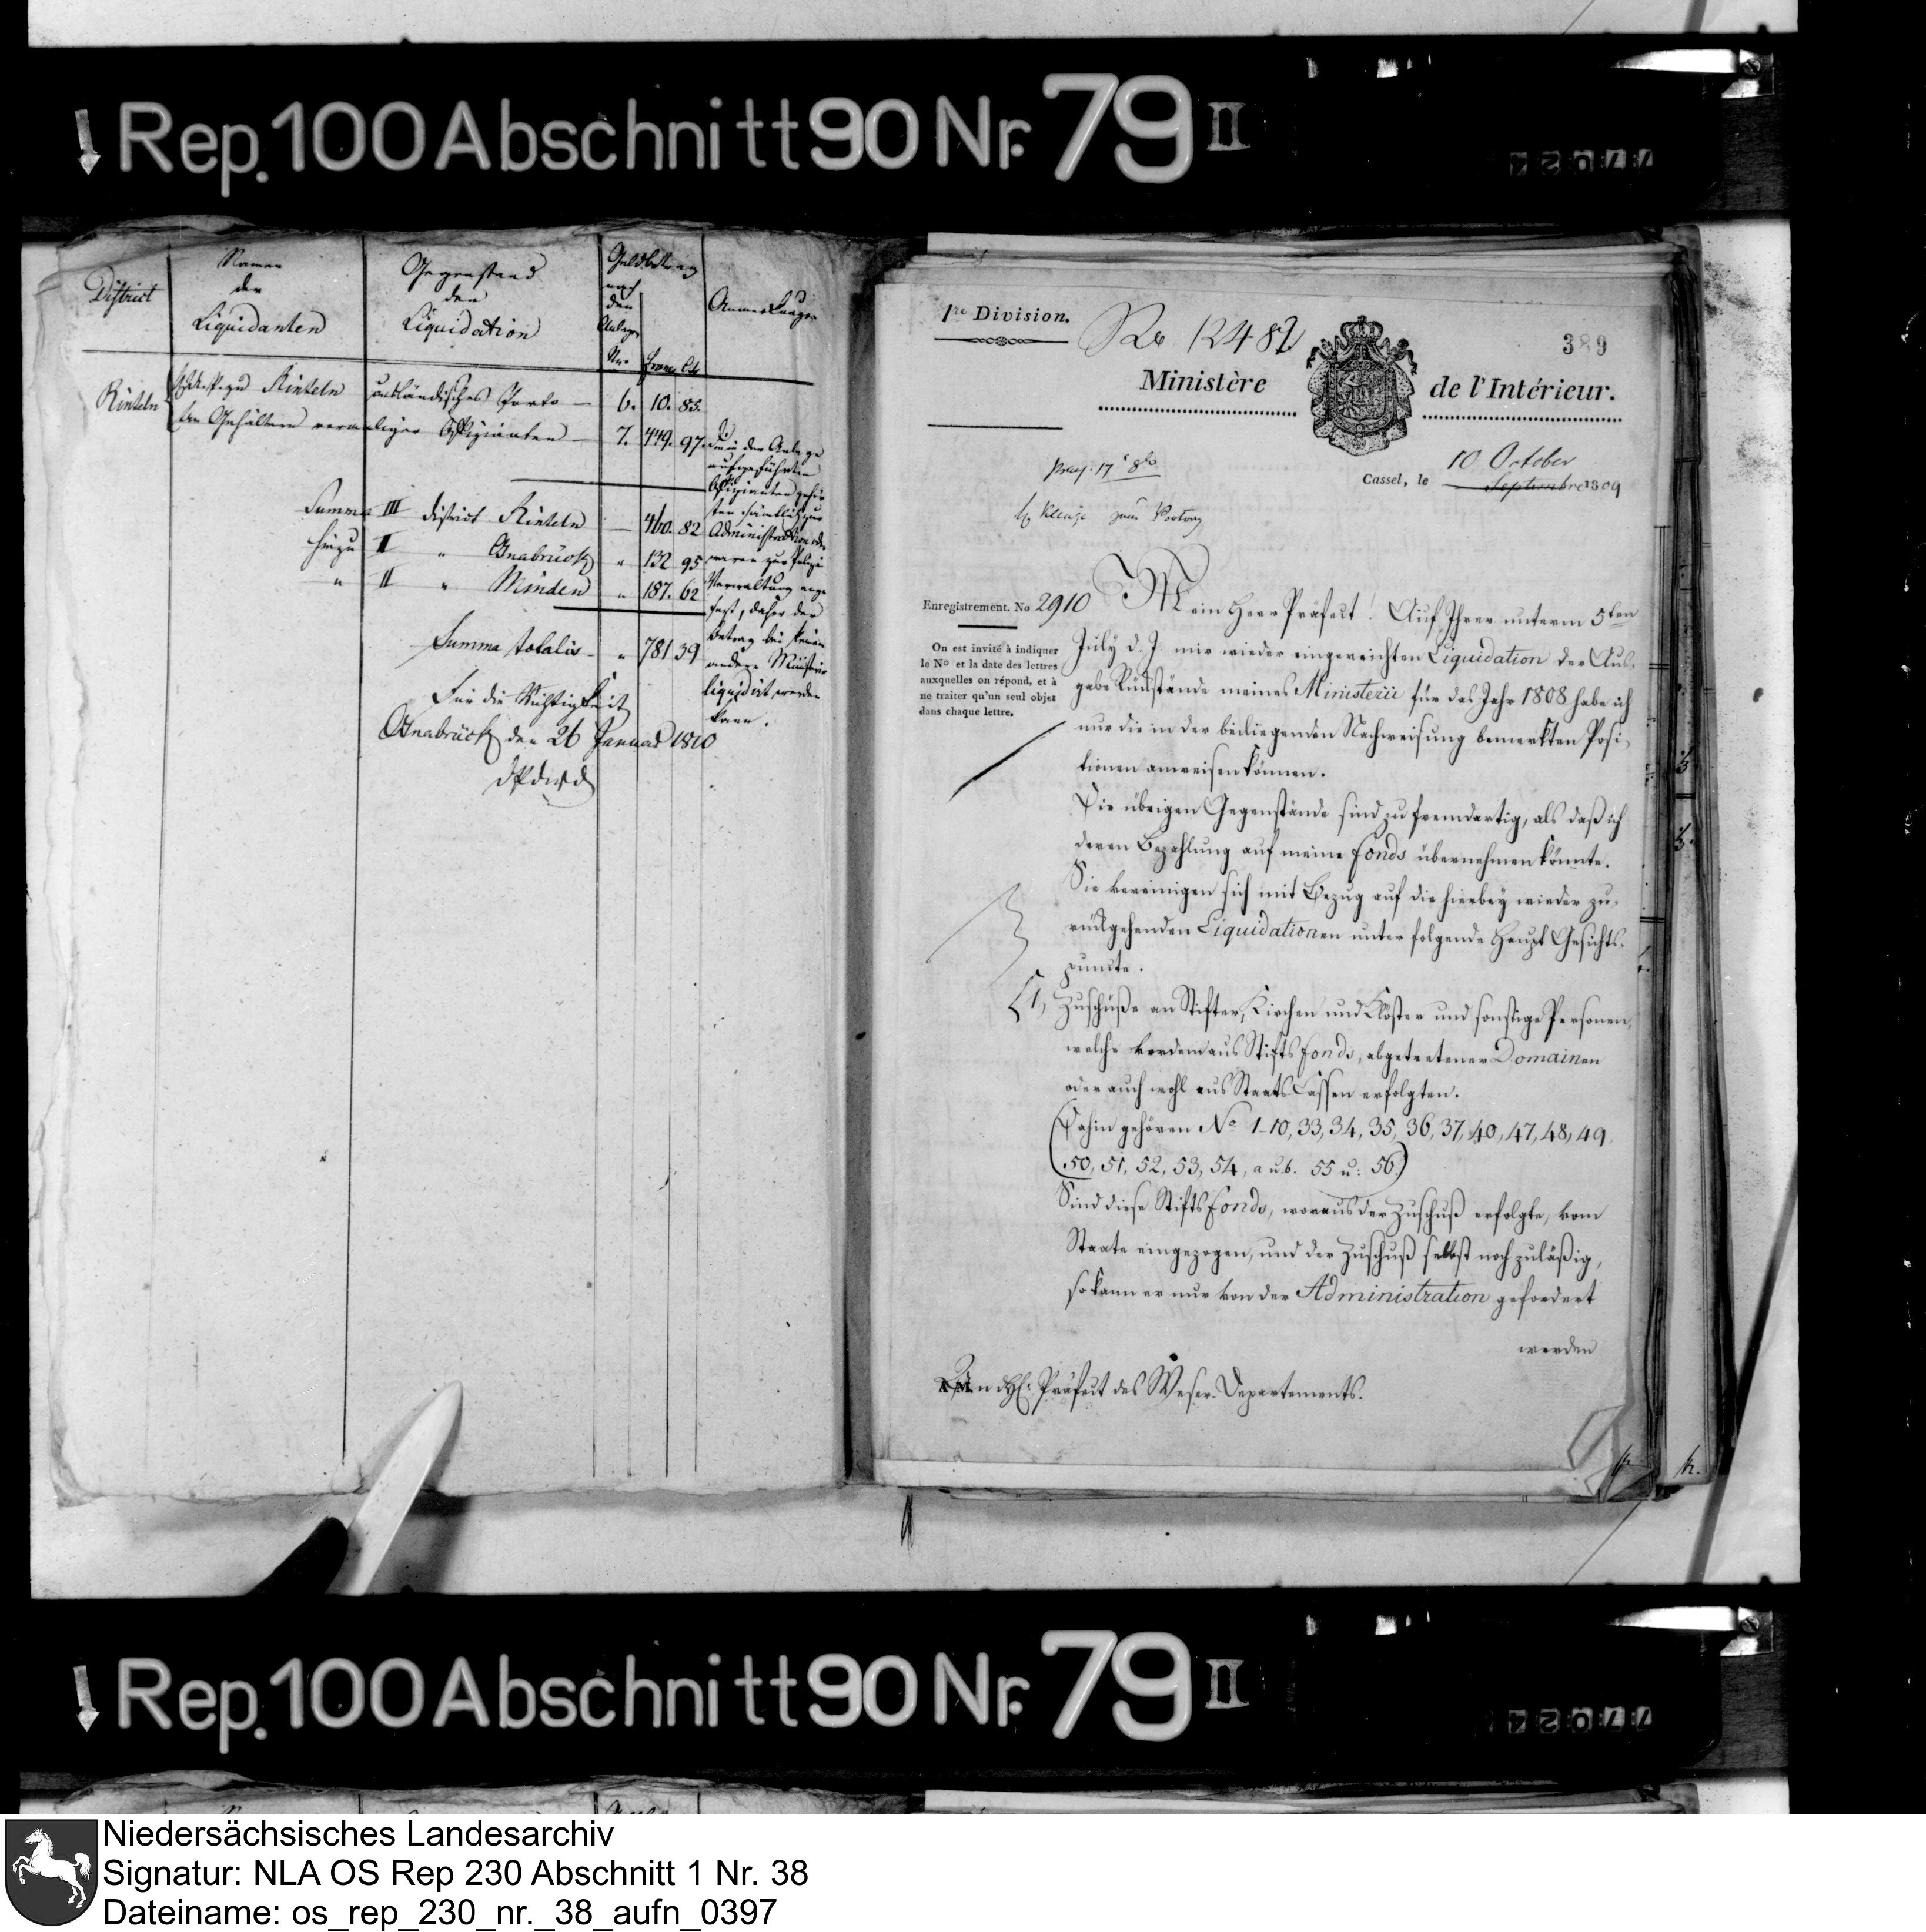 Rep. 100 Abschnitt 90 Nr. 79 II
77024
District
Namen
der
Liquidanten
Gegenstand
der
Liquidation
Geldbetrag
nach
den
Anlagen
Nro Franc Cts
Anmerkungen
Rinteln
zu Rinteln ausländisches Porto — 6. 10. 85.
An Gehältern vormaliger Offizianten — 7. 449. 97.
Die in der Anlage
aufgeführten
Offizianten gehör
ten sämtlich zur
Administration oder
waren zur Polizei
Verwaltung ange
setzt, daher der
Betrag bei keinem
andern Ministerio
liquidirt werden
kann.
Summa III District Rinteln — 460. 82
hinzu II " Osnabrück " 132 95
" II " Minden " 187. 62
Summa totalis — " 781 39
Für die Richtigkeit
Osnabrück den 26 Januar 1810
1re Division.
12482
389
Ministère de l'Intérieur.
10 October
Cassel, le Septembre 1809
praes. 17 8br
zum Vortrag
Enregistrement. No 2910
On est invité à indiquer
le No et la date des lettres
auxquelles on répond, et à
ne traiter qu'un seul objet
dans chaque lettre.
Mein Herr Präfect! Auf Ihrer unterm 5ten
July d. J. mir wieder eingereichten Liquidation der Aus-
gabe Rückstände meines Ministerii für das Jahr 1808 habe ich
nur die in der beiliegenden Nachweisung bemerkten Posi-
tionen anweisen können.
Die übrigen Gegenstände sind zu fremdartig, als daß ich
deren Bezahlung auf meine Fonds übernehmen könnte.
Sie vereinigen sich mit Bezug auf die hierbey wieder zu-
rückgehenden Liquidationen unter folgende Haupt Gesichts-
puncte.
1, Zuschüße an Stifter, Kirchen und Klöster und sonstige Personen,
welche vordem aus Stifts Fonds, abgetretener Domainen
oder auch wohl aus Staats Cassen erfolgten.
(Dahin gehören No 1-10, 33, 34, 35, 36, 37, 40, 47, 48, 49,
50, 51, 52, 53, 54, a u. b. 55 u: 56.)
Sind diese Stifts Fonds, woraus der Zuschuß erfolgte, vom
Staate eingezogen, und der Zuschuß selbst noch zuläßig,
so kann er nur von der Administration gefordert
werden
An H: Präfect des Weser-Departements.
Rep. 100 Abschnitt 90 Nr. 79 II
77024
Niedersächsisches Landesarchiv
Signatur: NLA OS Rep 230 Abschnitt 1 Nr. 38
Dateiname: os_rep_230_nr._38_aufn_0397